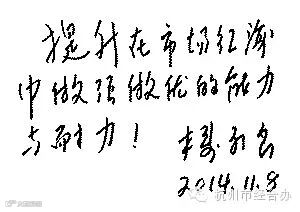 提升在市场经济
中做强做优的能力
与耐力！
2014.11.8
杭州市经合办